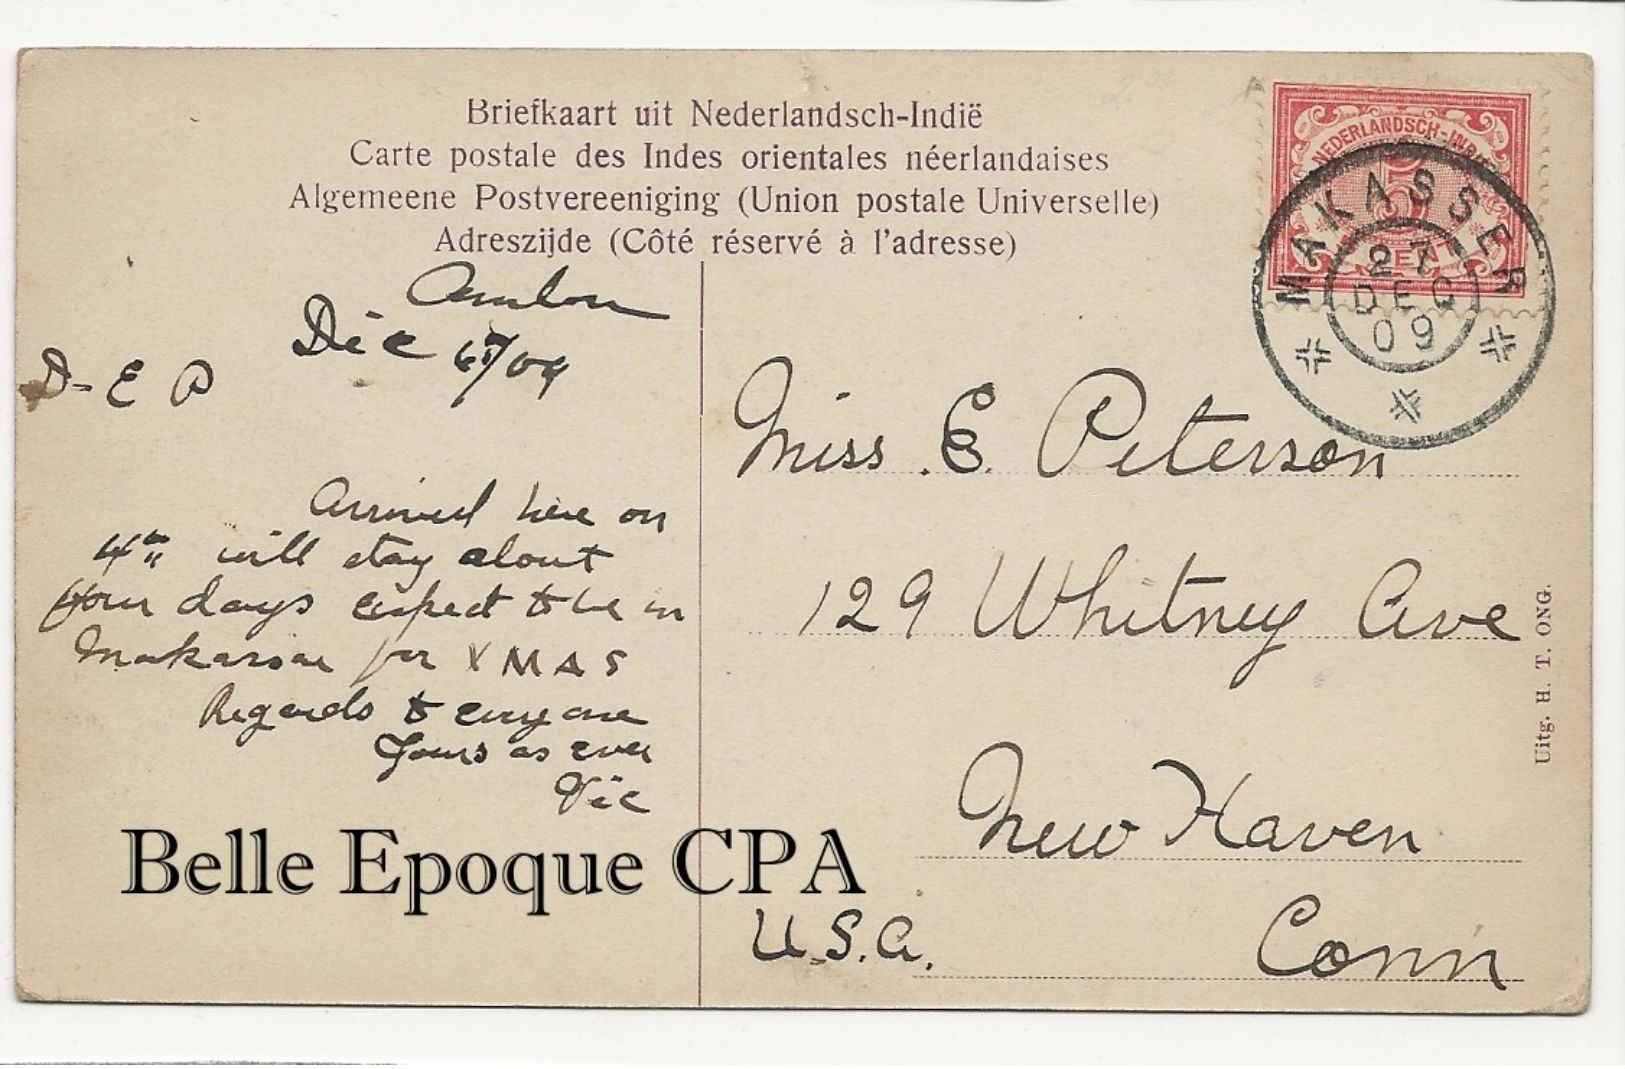 Briefkaart uit Nederlandsch-Indië
Carte postale des Indes orientales néerlandaises
Algemeene Postvereeniging (Union postale Universelle)
Adreszijde (Côté réservé à l'adresse)
NEDERLANDSCH-INDIË
5
CENT
MAKASSER
27
DEC
09
Ambon
Dec 6/09
D- E P
Arrived here on
4th will stay about
four days expect to be in
Makassar for XMAS
Regards to everyone
Yours as ever
Vic
Miss. E. Peterson
129 Whitney Ave
New Haven
Conn
U.S.A.
Uitg. H. T. ONG.
Belle Epoque CPA